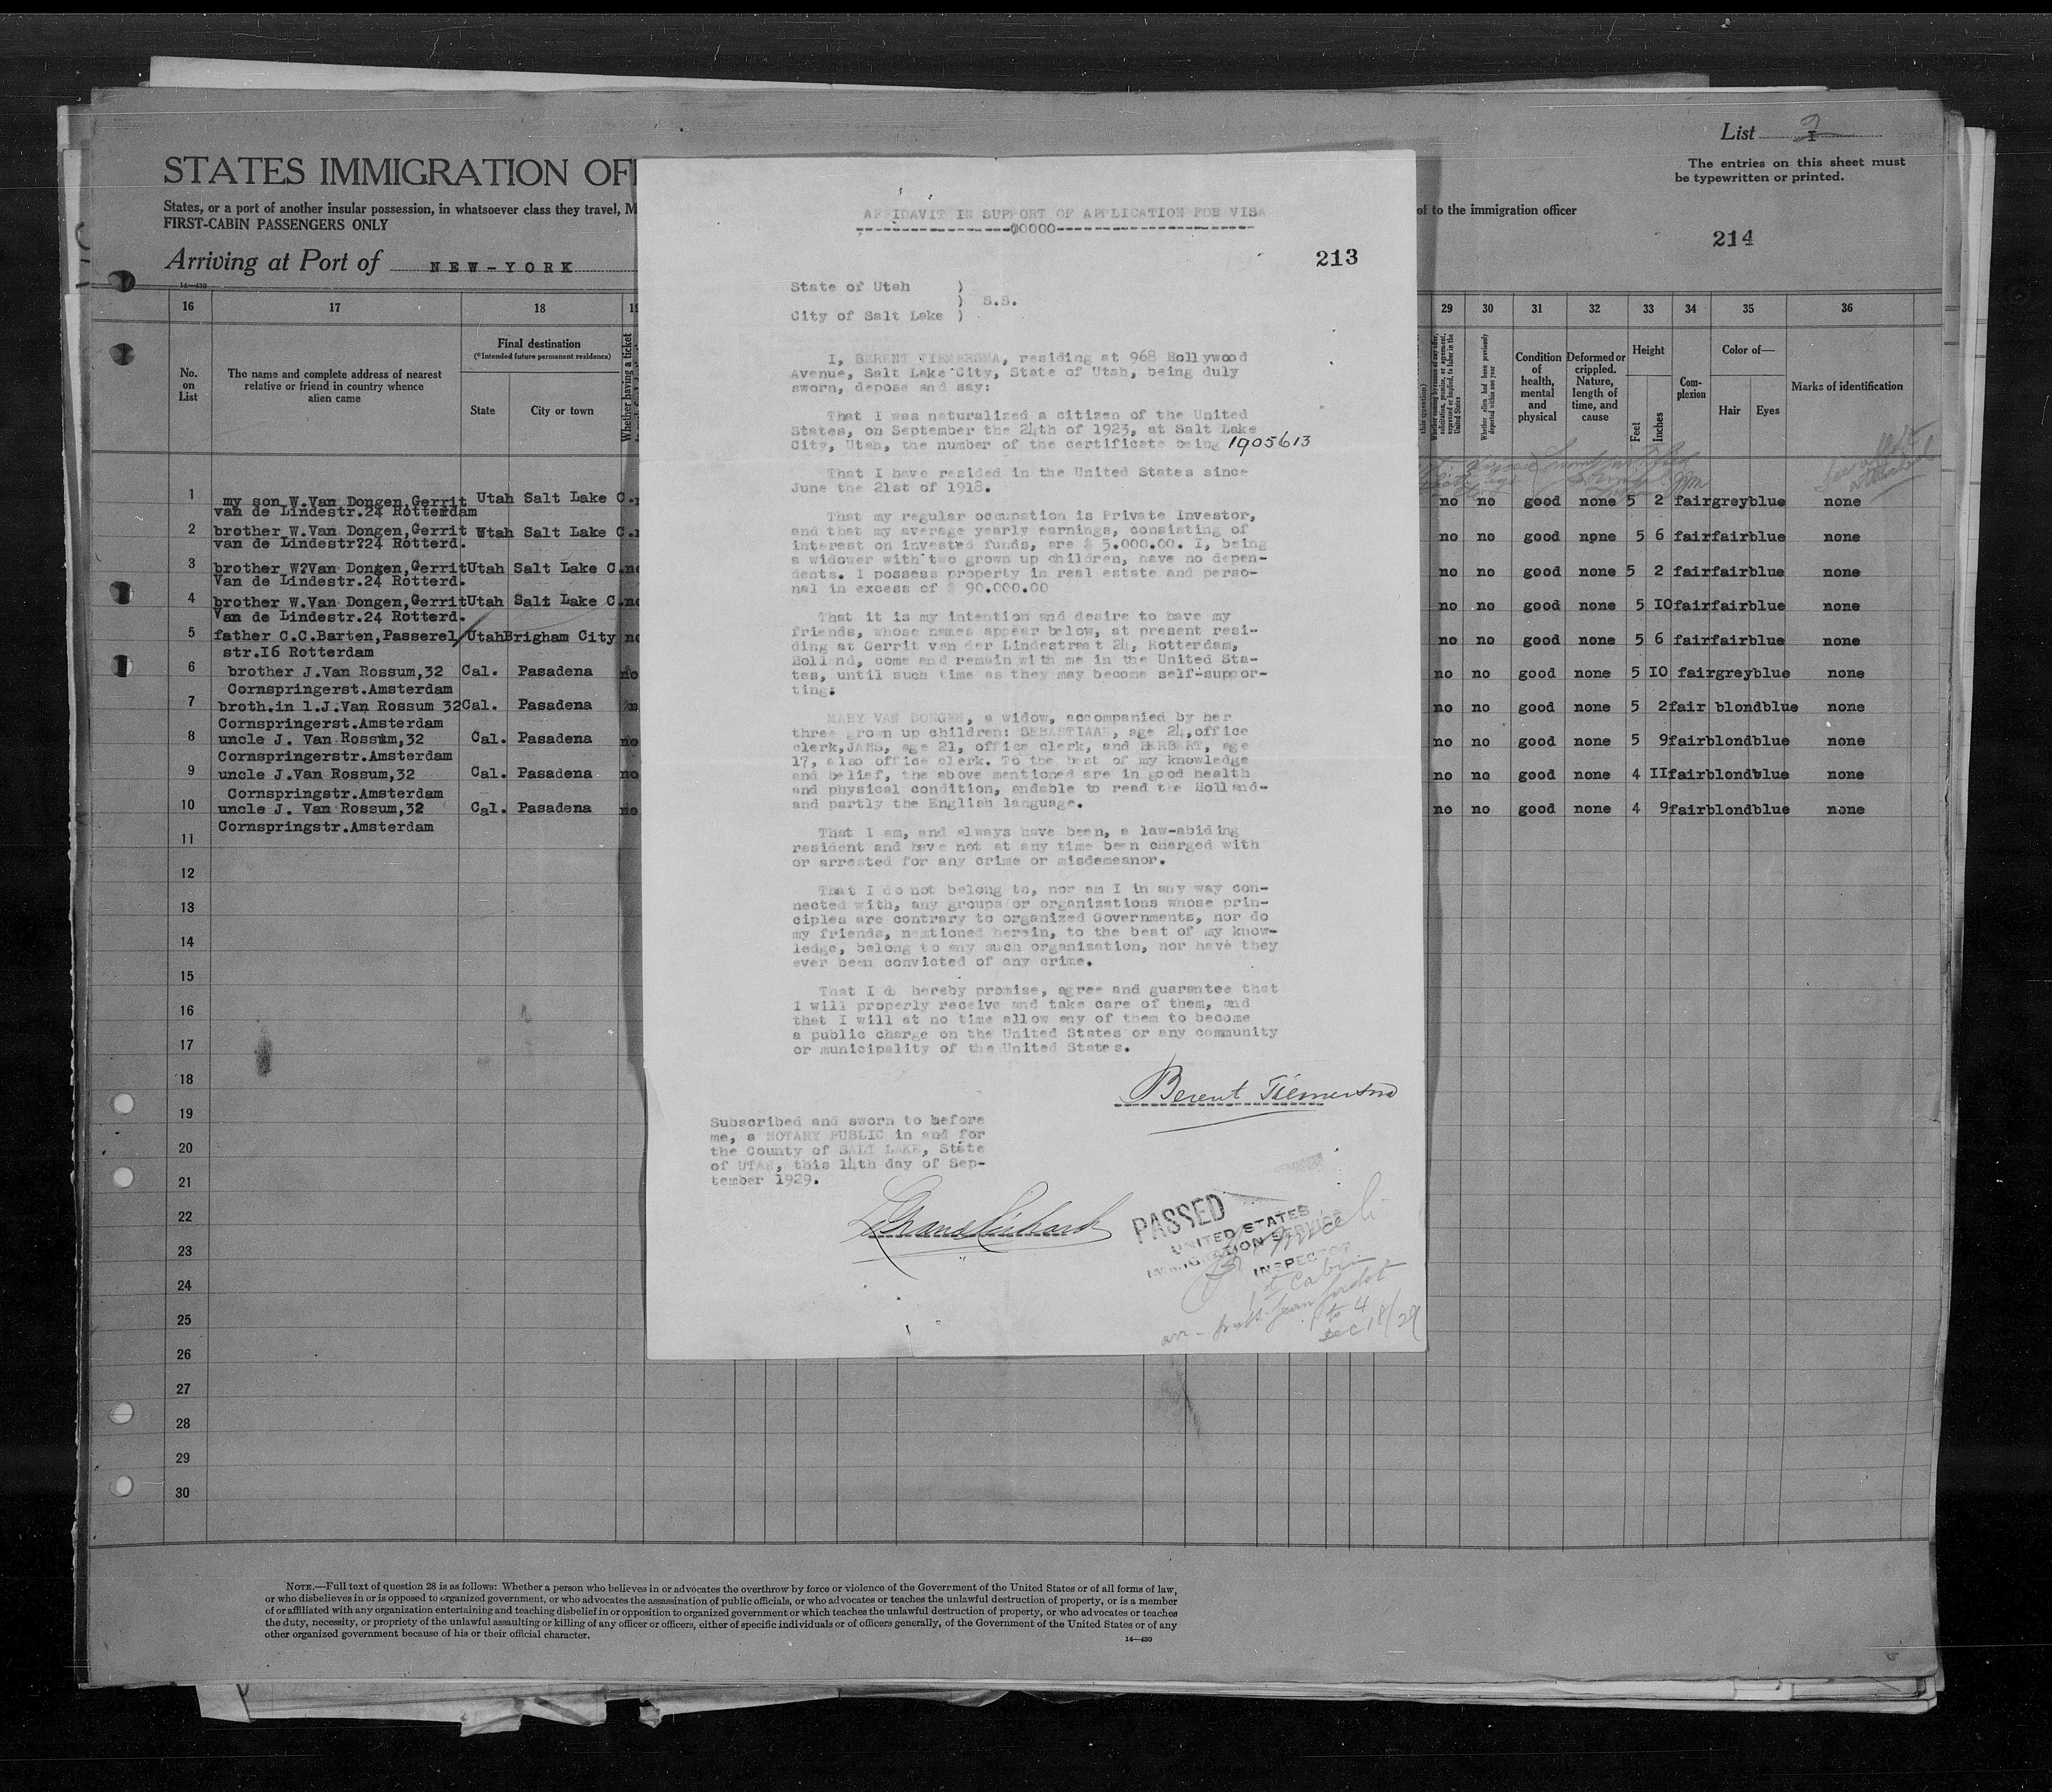 List 2
The entries on this sheet must
be typewritten or printed.
STATES IMMIGRATION OF
States, or a port of another insular possession, in whatsoever class they travel, M
of to the immigration officer
FIRST-CABIN PASSENGERS ONLY
214
Arriving at Port of NEW-YORK
14—430
16 17 18
29 30 31 32 33 34 35 36
No. on List
The name and complete address of nearest
relative or friend in country whence
alien came
Final destination
(*Intended future permanent residence)
State
City or town
Whether having a ticket
Whether alien had been previously deported within one year
Condition of health, mental and physical
Deformed or crippled. Nature, length of time, and cause
Height
Feet
Inches
Com-plexion
Color of—
Hair
Eyes
Marks of identification
1 my son W.Van Dongen,Gerrit Utah Salt Lake C.
van de Lindestr.24 Rotterdam
no no good none 5 2 fairgreyblue none
2 brother W.Van Dongen,Gerrit Utah Salt Lake C.
van de Lindestr?24 Rotterd.
no no good none 5 6 fairfairblue none
3 brother W?Van Dongen,GerritUtah Salt Lake C.no
Van de Lindestr.24 Rotterd.
no no good none 5 2 fairfairblue none
4 brother W.Van Dongen,GerritUtah Salt Lake C.no
Van de Lindestr.24 Rotterd.
no no good none 5 IOfairfairblue none
5 father C.C.Barten,Passerel/UtahBrigham City no
str.I6 Rotterdam
no no good none 5 6 fairfairblue none
6 brother J.Van Rossum,32 Cal. Pasadena no
Cornspringerst.Amsterdam
no no good none 5 IO fairgreyblue none
7 broth.in l.J.Van Rossum 32Cal. Pasadena
Cornspringerst.Amsterdam
no no good none 5 2fair blondblue none
8 uncle J. Van Rossum,32 Cal. Pasadena no
Cornspringerstr.Amsterdam
no no good none 5 9fairblondblue none
9 uncle J.Van Rossum,32 Cal. Pasadena no
Cornspringstr.Amsterdam
no no good none 4 IIfairblondblue none
10 uncle J. Van Rossum,32 Cal. Pasadena no
Cornspringstr.Amsterdam
no no good none 4 9fairblondblue none
11
12
13
14
15
16
17
18
19
20
21
22
23
24
25
26
27
28
29
30
AFFIDAVIT IN SUPPORT OF APPLICATION FOR VISA
------------------00000-----------------------
213
State of Utah )
) S.S.
City of Salt Lake )
I, BERENT TIEMERSMA, residing at 968 Hollywood
Avenue, Salt Lake City, State of Utah, being duly
sworn, depose and say:
That I was naturalized a citizen of the United
States, on September the 24th of 1923, at Salt Lake
City, Utah, the number of the certificate being 1905613
That I have resided in the United States since
June the 21st of 1918.
That my regular occupation is Private Investor,
and that my average yearly earnings, consisting of
interest on invested funds, are $ 5.000.00. I, being
a widower with two grown up children, have no depen-
dents. I possess property in real estate and perso-
nal in excess of $ 90.000.00
That it is my intention and desire to have my
friends, whose names appear below, at present resi-
ding at Gerrit van der Lindestraat 24, Rotterdam,
Holland, come and remain with me in the United Sta-
tes, until such time as they may become self-suppor-
ting:
MARY VAN DONGEN, a widow, accompanied by her
three grown up children: SEBASTIAAN, age 24,office
clerk,JANS, age 21, office clerk, and HERBERT, age
17, also office clerk. To the best of my knowledge
and belief, the above mentioned are in good health
and physical condition, andable to read the Holland-
and partly the English language.
That I am, and always have been, a law-abiding
resident and have not at any time been charged with
or arrested for any crime or misdemeanor.
That I do not belong to, nor am I in any way con-
nected with, any groups or organizations whose prin-
ciples are contrary to organized Governments, nor do
my friends, nemtioned herein, to the best of my know-
ledge, belong to any such organization, nor have they
ever been convicted of any crime.
That I do hereby promise, agree and guarantee that
I will properly receive and take care of them, and
that I will at no time allow any of them to become
a public charge on the United States or any community
or municipality of the United States.
Berent Tiemersma
Subscribed and sworn to before
me, a NOTARY PUBLIC in and for
the County of SALT LAKE, State
of UTAH, this 14th day of Sep-
tember 1929.
LeGrand Richards
PASSED
UNITED STATES
IMMIGRATION SERVICE
INSPECTOR
1st Cabin
to 4
Dec 18/29
NOTE.—Full text of question 28 is as follows: Whether a person who believes in or advocates the overthrow by force or violence of the Government of the United States or of all forms of law,
or who disbelieves in or is opposed to organized government, or who advocates the assassination of public officials, or who advocates or teaches the unlawful destruction of property, or is a member
of or affiliated with any organization entertaining and teaching disbelief in or opposition to organized government or which teaches the unlawful destruction of property, or who advocates or teaches
the duty, necessity, or propriety of the unlawful assaulting or killing of any officer or officers, either of specific individuals or of officers generally, of the Government of the United States or of any
other organized government because of his or their official character.
14—430